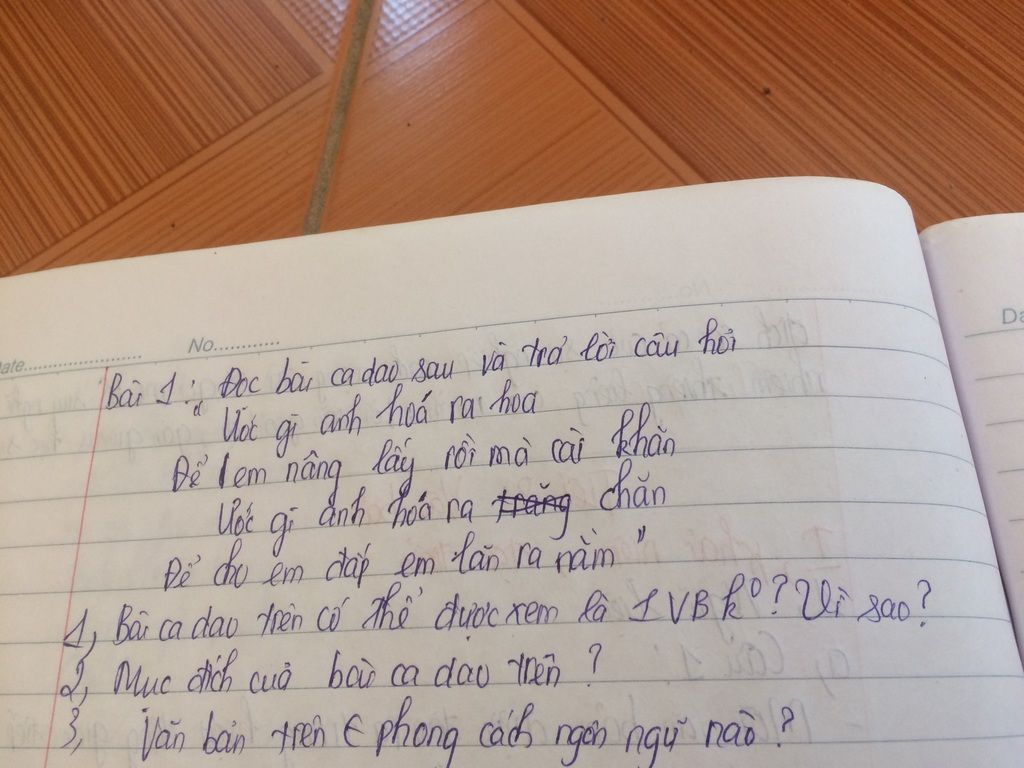 Date.................... No...........
Bài 1: Đọc bài ca dao sau và trả lời câu hỏi
" Ước gì anh hoá ra hoa
Để em nâng lấy rồi mà cài khăn
Ước gì anh hoá ra trăng chăn
Để cho em đắp em lăn ra nằm "
1, Bài ca dao trên có thể được xem là 1 VB k⁰? Vì sao?
2, Mục đích của bài ca dao trên ?
3, Văn bản trên ∈ phong cách ngôn ngữ nào ?
Da